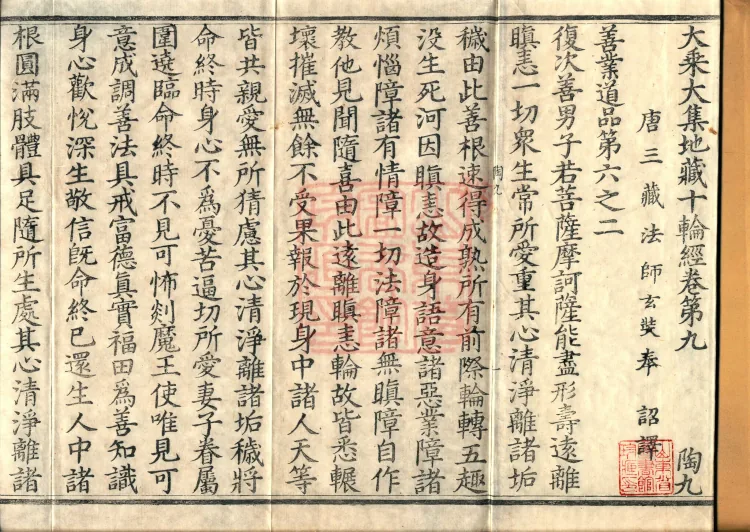 大乘大集地藏十輪經卷第九 陶九
唐三藏法師玄奘奉 詔譯
善業道品第六之二
復次善男子若菩薩摩訶薩能盡形壽遠離
瞋恚一切眾生常所愛重其心清淨離諸垢
陶九 一
穢由此善根速得成熟所有前際輪轉五趣
没生死河因瞋恚故造身語意諸惡業障諸
煩惱障諸有情障一切法障諸無瞋障自作
教他見聞隨喜由此遠離瞋恚輪故皆悉輾
壞摧滅無餘不受果報於現身中諸人天等
皆共親愛無所猜慮其心清淨離諸垢穢將
命終時身心不爲憂苦逼切所愛妻子眷屬
圍遶臨命終時不見可怖剡魔王使唯見可
意成調善法具戒富德真實福田爲善知識
身心歡悅深生敬信既命終已還生人中諸
根圓滿肢體具足隨所生處其心清淨離諸